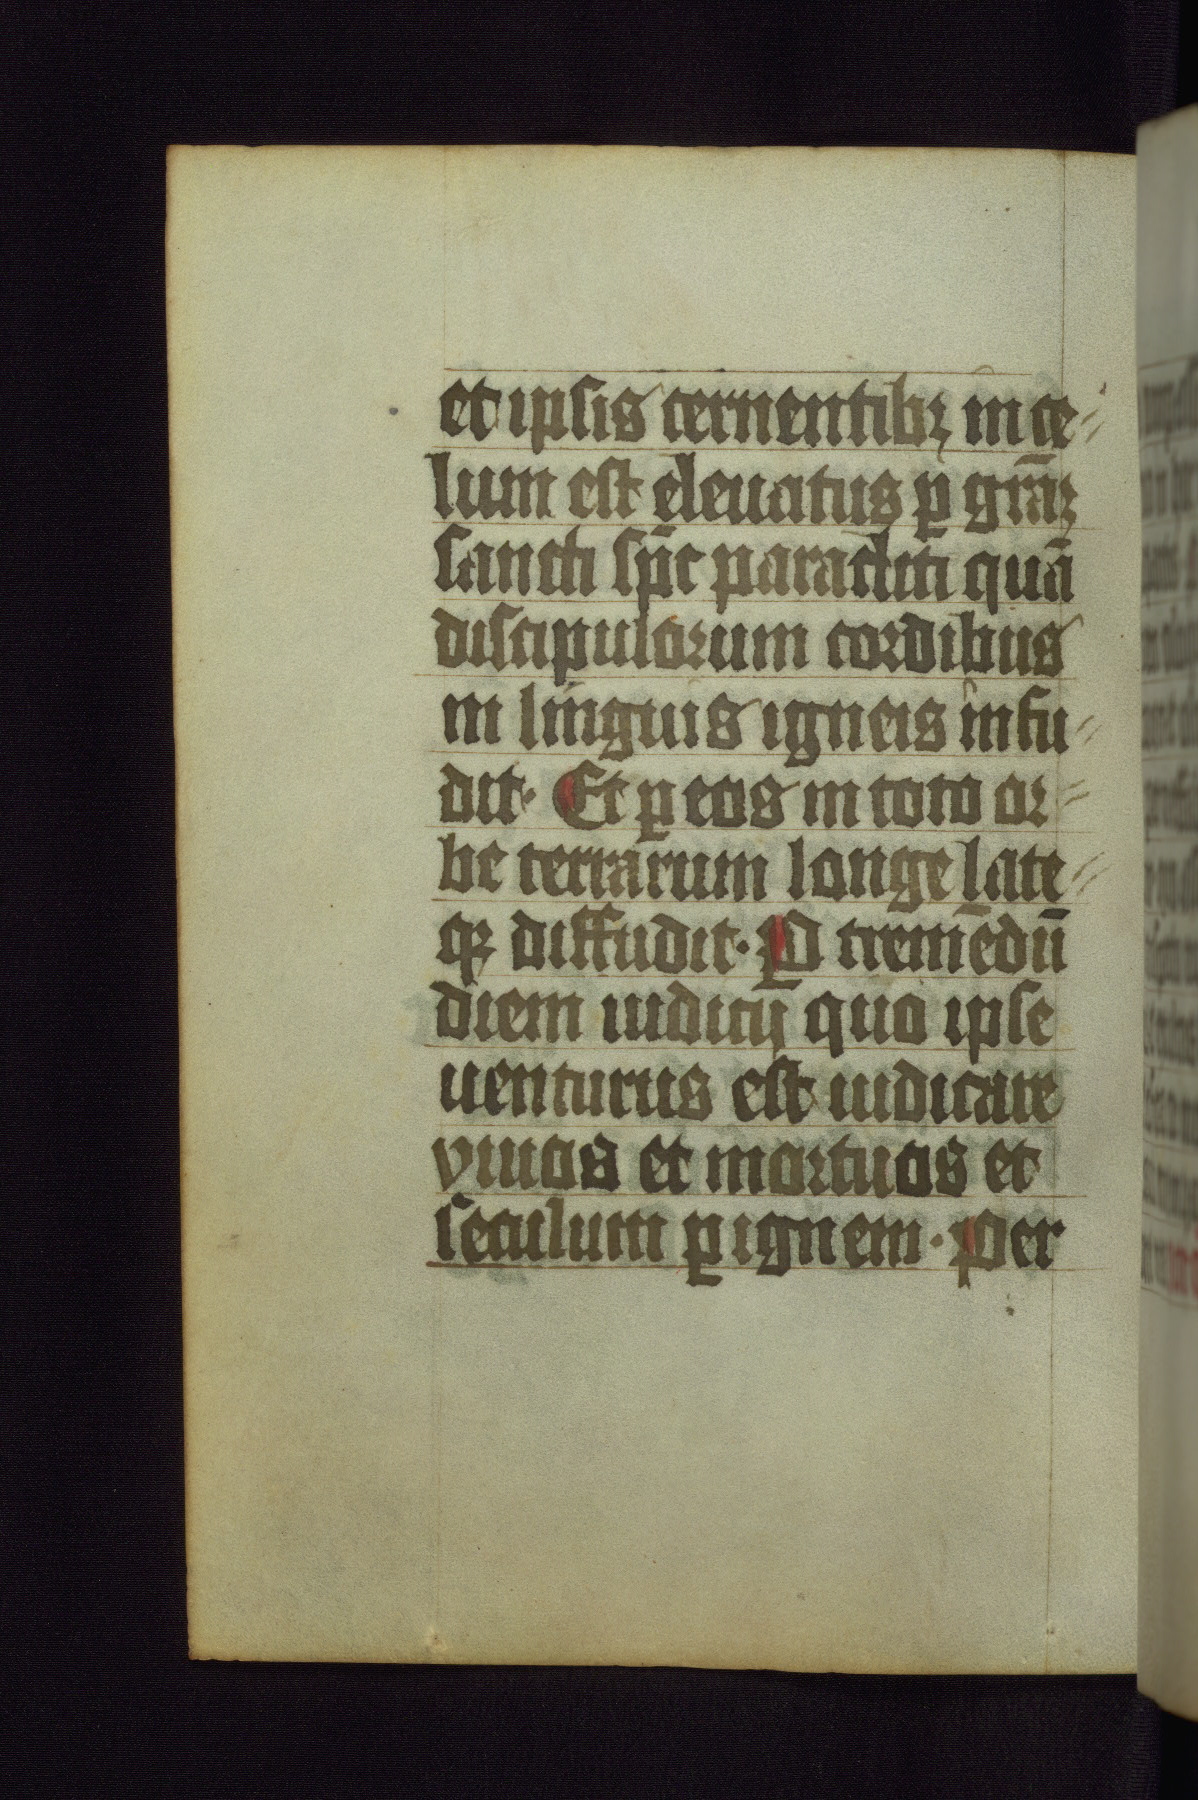 et ipsis cernentibꝫ in ce⸗
lum est eleuatus ꝑ gr̄aꝫ
sancti sp̄c paracliti quā
discipulorum cordibus
in linguis igneis infu⸗
dit· Et ꝑ eos in toto or⸗
be terrarum longe late⸗
qꝫ diffudit· Ꝑ tremēdū
diem iudicij quo ipse
uenturus est iudicare
viuos et mortuos et
seculum ꝑ ignem· Per